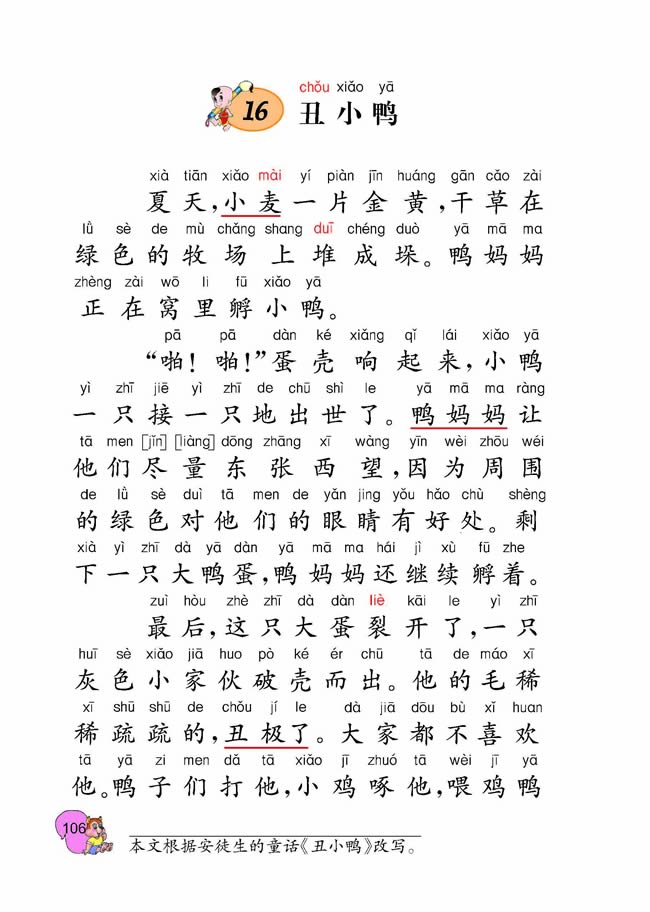 chǒu xiǎo yā
16 丑小鸭
xià tiān xiǎo mài yí piàn jīn huáng gān cǎo zài
夏天,小麦一片金黄,干草在
lǜ sè de mù chǎng shang duī chéng duò yā mā ma
绿色的牧场上堆成垛。鸭妈妈
zhèng zài wō li fū xiǎo yā
正在窝里孵小鸭。
pā pā dàn ké xiǎng qǐ lái xiǎo yā
“啪!啪!”蛋壳响起来,小鸭
yì zhī jiē yì zhī de chū shì le yā mā ma ràng
一只接一只地出世了。鸭妈妈让
tā men [jǐn] [liàng] dōng zhāng xī wàng yīn wèi zhōu wéi
他们尽量东张西望,因为周围
de lǜ sè duì tā men de yǎn jing yǒu hǎo chù shèng
的绿色对他们的眼睛有好处。剩
xià yì zhī dà yā dàn yā mā ma hái jì xù fū zhe
下一只大鸭蛋,鸭妈妈还继续孵着。
zuì hòu zhè zhī dà dàn liè kāi le yì zhī
最后,这只大蛋裂开了,一只
huī sè xiǎo jiā huo pò ké ér chū tā de máo xī
灰色小家伙破壳而出。他的毛稀
xī shū shū de chǒu jí le dà jiā dōu bù xǐ huan
稀疏疏的,丑极了。大家都不喜欢
tā yā zi men dǎ tā xiǎo jī zhuó tā wèi jī yā
他。鸭子们打他,小鸡啄他,喂鸡鸭
106
本文根据安徒生的童话《丑小鸭》改写。